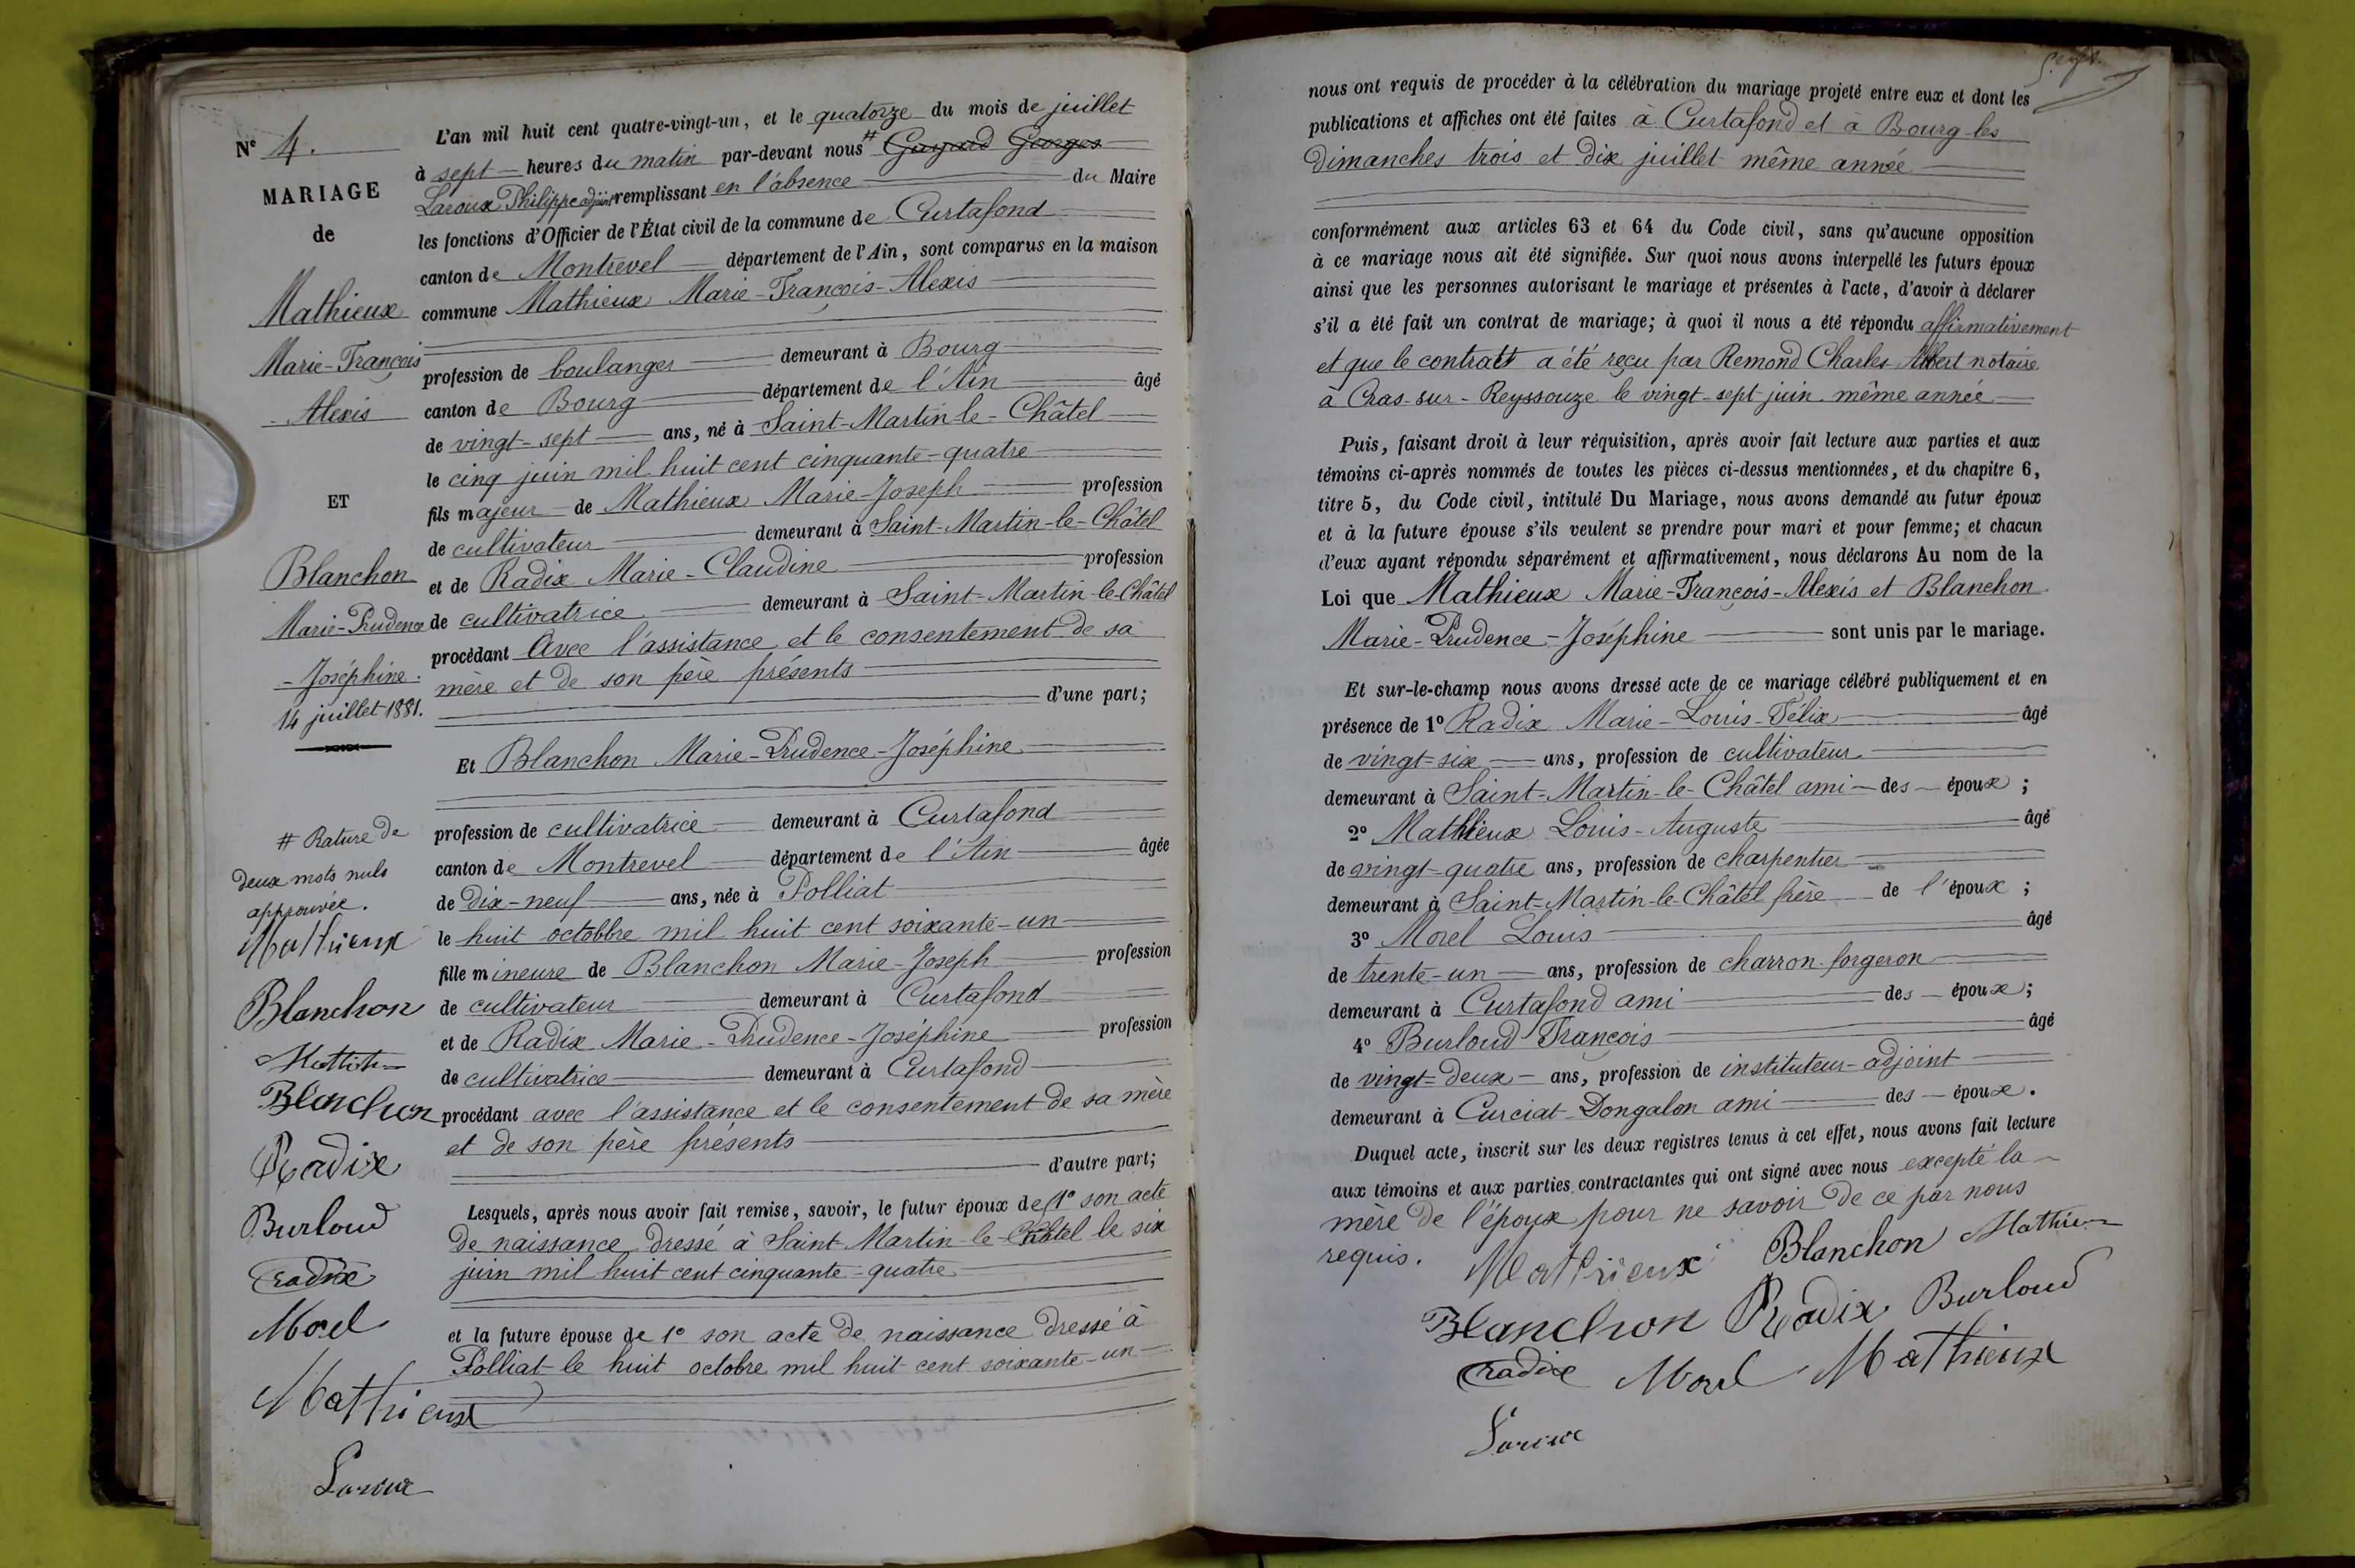 N° 4.
MARIAGE
de
Mathieux
Marie-François
-Alexis
ET
Blanchon
Marie-Prudence
-Joséphine.
14 juillet 1881.
# Rature de
deux mots nuls
approuvée.
Mathieux
Blanchon
Blanchon
Radix
Burloud
radix
Morel
Mathieux
Laroux
L'an mil huit cent quatre-vingt-un, et le quatorze du mois de juillet
à sept heures du matin par-devant nous # Guyard Georges
Laroux Philippe adjoint remplissant en l'absence du Maire
les fonctions d'Officier de l'État civil de la commune de Curtafond
canton de Montrevel département de l'Ain, sont comparus en la maison
commune Mathieux Marie-François-Alexis
profession de boulanger demeurant à Bourg
canton de Bourg département de l'Ain âgé
de vingt-sept ans, né à Saint-Martin-le-Châtel
le cinq juin mil huit cent cinquante-quatre
fils majeur de Mathieux Marie-Joseph profession
de cultivateur demeurant à Saint-Martin-le-Châtel
et de Radix Marie-Claudine profession
de cultivatrice demeurant à Saint-Martin-le-Châtel
procédant Avec l'assistance et le consentement de sa
mère et de son père présents
d'une part;
Et Blanchon Marie-Prudence-Joséphine
profession de cultivatrice demeurant à Curtafond
canton de Montrevel département de l'Ain âgée
de dix-neuf ans, née à Polliat
le huit octobbre mil huit cent soixante-un
fille mineure de Blanchon Marie-Joseph profession
de cultivateur demeurant à Curtafond
et de Radix Marie-Prudence-Joséphine profession
de cultivatrice demeurant à Curtafond
procédant avec l'assistance et le consentement de sa mère
et de son père présents
d'autre part;
Lesquels, après nous avoir fait remise, savoir, le futur époux de 1° son acte
de naissance dressé à Saint-Martin-le-Châtel le six
juin mil huit cent cinquante-quatre
et la future épouse de 1° son acte de naissance dressé à
Polliat le huit octobre mil huit cent soixante-un
nous ont requis de procéder à la célébration du mariage projeté entre eux et dont les
publications et affiches ont été faites à Curtafond et à Bourg les
dimanches trois et dix juillet même année
conformément aux articles 63 et 64 du Code civil, sans qu'aucune opposition
à ce mariage nous ait été signifiée. Sur quoi nous avons interpellé les futurs époux
ainsi que les personnes autorisant le mariage et présentes à l'acte, d'avoir à déclarer
s'il a été fait un contrat de mariage; à quoi il nous a été répondu affirmativement
et que le contratt a été reçu par Remond Charles Albert notaire
à Cras-sur-Reyssouze le vingt-sept juin même année
Puis, faisant droit à leur réquisition, après avoir fait lecture aux parties et aux
témoins ci-après nommés de toutes les pièces ci-dessus mentionnées, et du chapitre 6,
titre 5, du Code civil, intitulé Du Mariage, nous avons demandé au futur époux
et à la future épouse s'ils veulent se prendre pour mari et pour femme; et chacun
d'eux ayant répondu séparément et affirmativement, nous déclarons Au nom de la
Loi que Mathieux Marie-François-Alexis et Blanchon
Marie-Prudence-Joséphine sont unis par le mariage.
Et sur-le-champ nous avons dressé acte de ce mariage célébré publiquement et en
présence de 1° Radix Marie-Louis-Félix âgé
de vingt-six ans, profession de cultivateur
demeurant à Saint-Martin-le-Châtel ami des époux;
2° Mathieux Louis-Auguste âgé
de vingt-quatre ans, profession de charpentier
demeurant à Saint-Martin-le-Châtel frère de l'époux;
3° Morel Louis âgé
de trente-un ans, profession de charron-forgeron
demeurant à Curtafond ami des époux;
4° Burloud François âgé
de vingt-deux ans, profession de instituteur-adjoint
demeurant à Curciat-Dongalon ami des époux.
Duquel acte, inscrit sur les deux registres tenus à cet effet, nous avons fait lecture
aux témoins et aux parties contractantes qui ont signé avec nous excepté la
mère de l'époux pour ne savoir de ce par nous
requis. Mathieux Blanchon Mathieux
Blanchon Radix Burloud
radix Morel Mathieux
Laroux